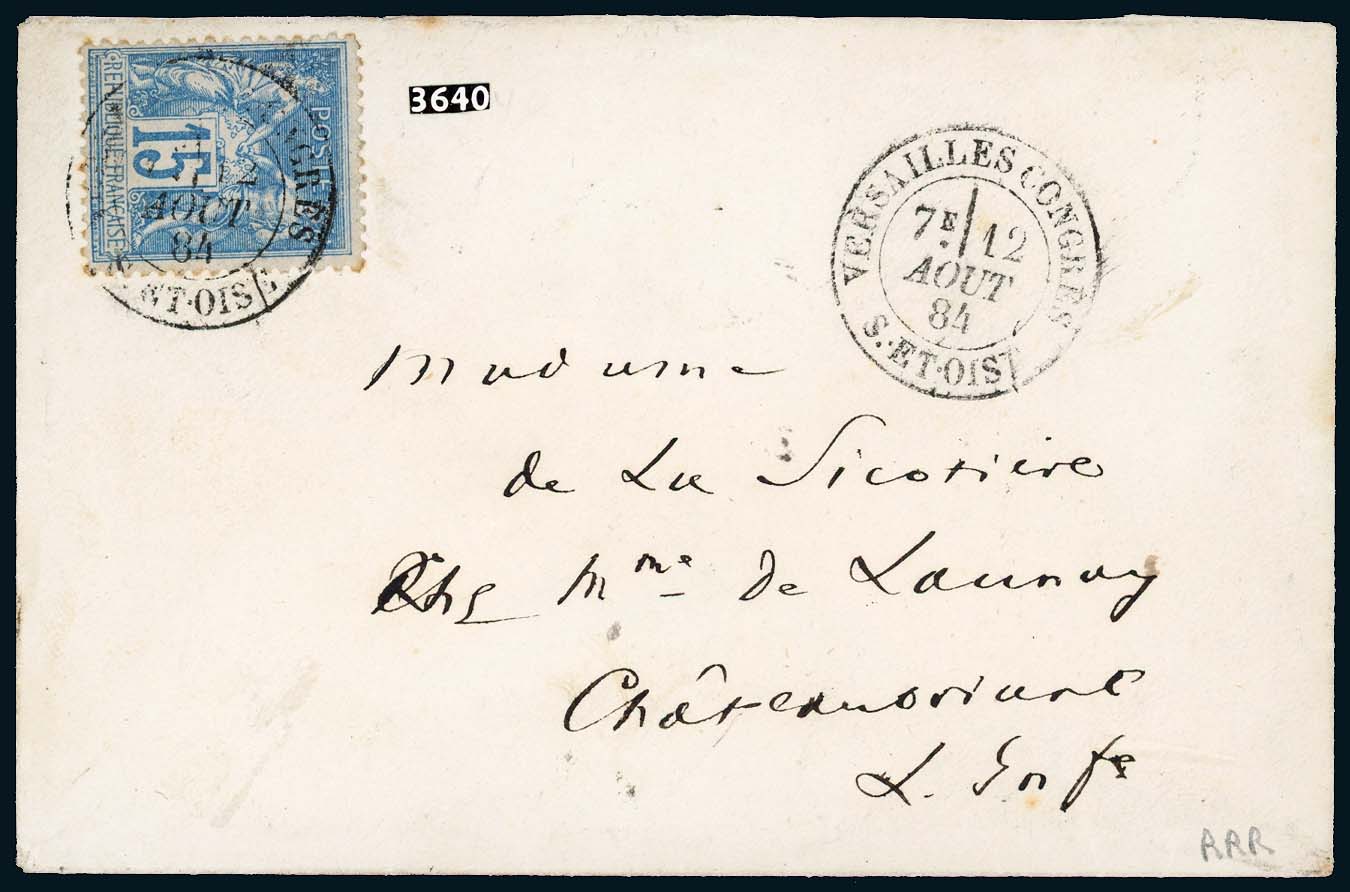 REPUBLIQUE·FRANÇAISE
15
POSTES
NGRÈS
12
AOUT
84
ET·OISE
3640
VERSAILLES CONGRÈS
7E 12
AOUT
84
S.·ET·OISE
Madame
de La Sicotière
Chz Mme de Launay
Châteaubriant
L. Infe
RRR